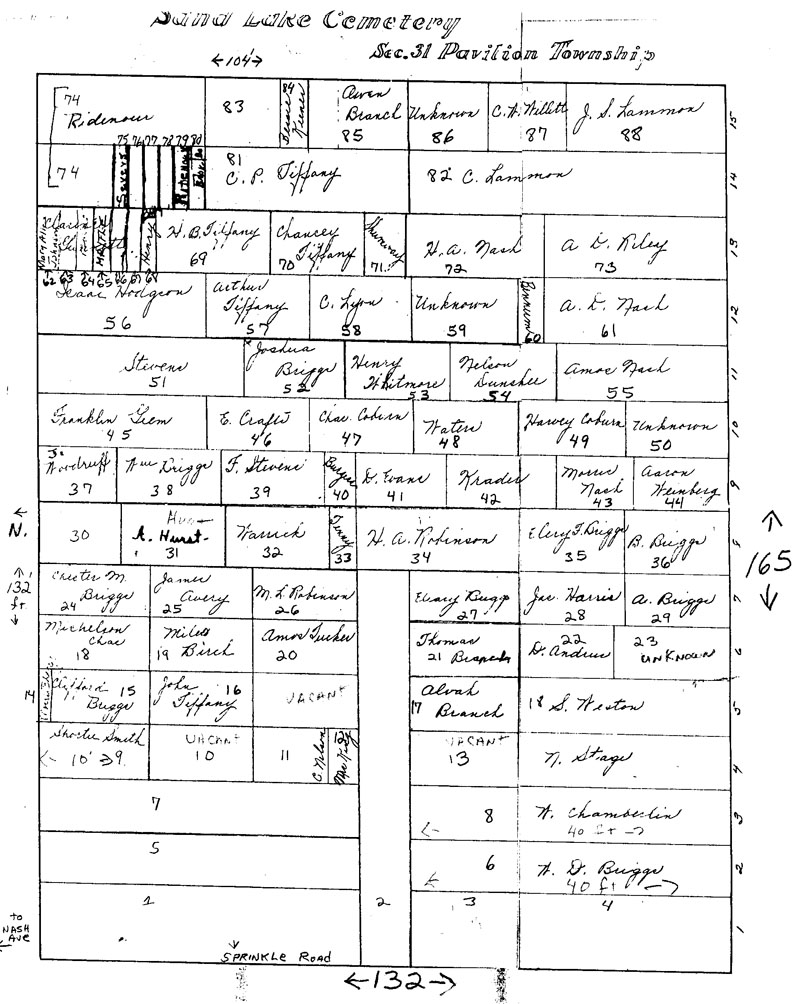 Sand Lake Cemetery
Sec.31 Pavilion Township
←104'→
74 Ridenour
83
84 Bessie Keener
Owen Branch 85
Unknown 86
C. W. Willett 87
J. S. Lammon 88
15
74
75 76 77 78 79 80
Severs
Ridenour
81 C. P. Tiffany
82 C. Lammon
14
Mary Ann
62 63 64 65 66 67 68
Henry
H. B. Tiffany 69
Chancey Tiffany 70
Shumway 71
H. A. Nash 72
A. D. Riley 73
13
Isaac Hodgson 56
Arthur Tiffany 57
C. Lyon 58
Unknown 59
60
A. D. Nash 61
12
Stevens 51
Joshua Briggs 52
Henry Whitmore 53
Nelson Dunshee 54
Amos Nash 55
11
Franklin Grem 45
E. Crafts 46
Chas. Coburn 47
Waters 48
Harvey Coburn 49
Unknown 50
10
Jo. Woodruff 37
Wm Briggs 38
F. Stevens 39
Burger 40
D. Evans 41
Krader 42
Morris Nash 43
Aaron Weinberg 44
9
← N.
30
A. Hurst 31
Warrick 32
Tenny 33
H. A. Robinson 34
Elery F. Briggs 35
B. Briggs 36
8
165
132 ft.
Chester M. Briggs 24
James Avery 25
M. L. Robinson 26
Elvary Briggs 27
Jac. Harris 28
A. Briggs 29
7
Michelson Chas 18
Miles 19 Birch
Amos Tucker 20
Thomas 21
22 D. Andrus
23 UNKNOWN
6
14
Clifford 15 Briggs
John 16 Tiffany
VACANT
Alvah 17 Branch
18 S. Weston
5
Shortie Smith
← 10' → 9
VACANT 10
11
C. Nelson
12
VACANT 13
N. Stage
4
7
← 8
W. Chamberlin
40 ft →
3
5
← 6
W. D. Briggs
40 ft →
2
1
2
3
4
1
to NASH AVE
SPRINKLE ROAD
←132→